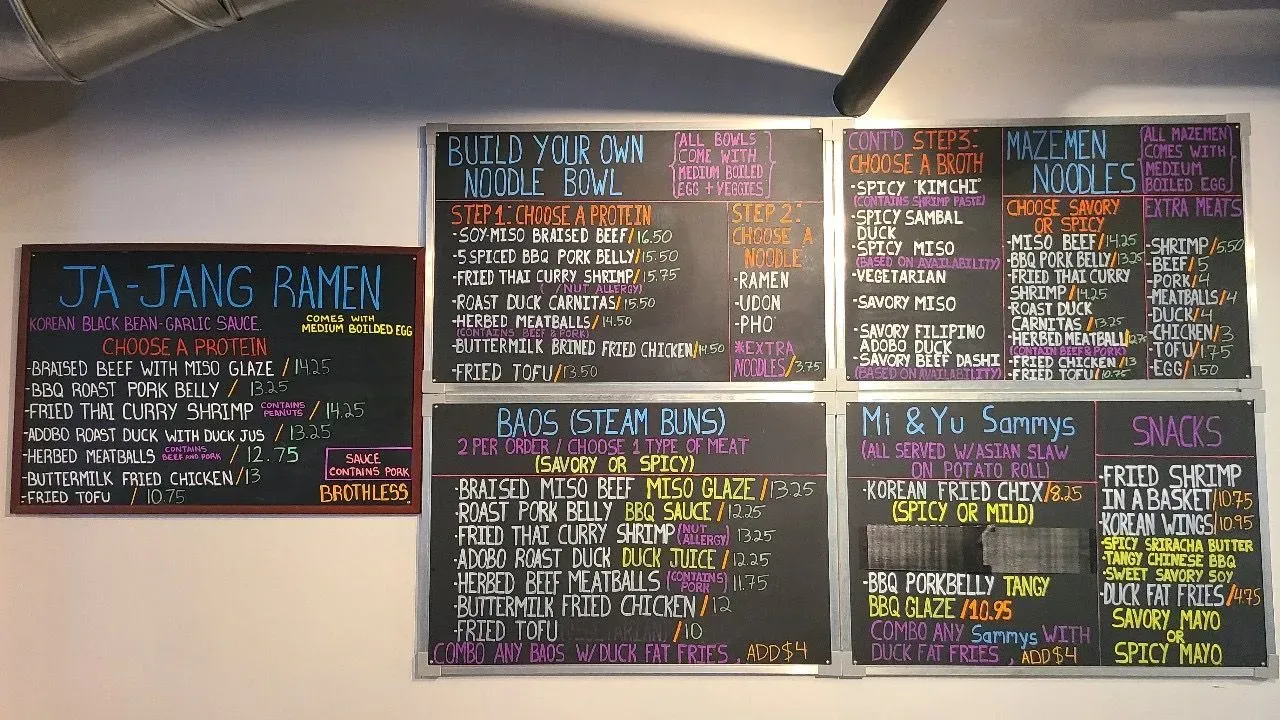 JA-JANG RAMEN
KOREAN BLACK BEAN-GARLIC SAUCE.
COMES WITH
MEDIUM BOILDED EGG
CHOOSE A PROTEIN
-BRAISED BEEF WITH MISO GLAZE / 14.25
-BBQ ROAST PORK BELLY / 13.25
-FRIED THAI CURRY SHRIMP CONTAINS PEANUTS / 14.25
-ADOBO ROAST DUCK WITH DUCK JUS / 13.25
-HERBED MEATBALLS CONTAINS BEEF AND PORK / 12.75
-BUTTERMILK FRIED CHICKEN/13
-FRIED TOFU / 10.75
SAUCE
CONTAINS PORK
BROTHLESS
BUILD YOUR OWN
NOODLE BOWL
{ALL BOWLS
COME WITH
MEDIUM BOILED
EGG + VEGGIES}
STEP 1: CHOOSE A PROTEIN
-SOY-MISO BRAISED BEEF/16.50
-5 SPICED BBQ PORK BELLY/15.50
-FRIED THAI CURRY SHRIMP/15.75
(NUT ALLERGY)
-ROAST DUCK CARNITAS/15.50
-HERBED MEATBALLS/14.50
(CONTAINS BEEF & PORK)
-BUTTERMILK BRINED FRIED CHICKEN/14.50
-FRIED TOFU/13.50
STEP 2:
CHOOSE A
NOODLE
-RAMEN
-UDON
-PHO
*EXTRA
NOODLES/3.75
CONT'D STEP3:
CHOOSE A BROTH
-SPICY "KIMCHI"
(CONTAINS SHRIMP PASTE)
-SPICY SAMBAL
DUCK
-SPICY MISO
(BASED ON AVAILABILITY)
-VEGETARIAN
-SAVORY MISO
-SAVORY FILIPINO
ADOBO DUCK
-SAVORY BEEF DASHI
(BASED ON AVAILABILITY)
MAZEMEN
NOODLES
{ALL MAZEMEN
COMES WITH
MEDIUM
BOILED EGG}
CHOOSE SAVORY
OR SPICY
-MISO BEEF/14.25
-BBQ PORK BELLY/13.25
-FRIED THAI CURRY
SHRIMP/14.25
-ROAST DUCK
CARNITAS/13.25
-HERBED MEATBALL/12.75
(CONTAIN BEEF & PORK)
-FRIED CHICKEN/13
-FRIED TOFU/10.75
EXTRA MEATS
-SHRIMP/5.50
-BEEF/5
-PORK/4
-MEATBALLS/4
-DUCK/4
-CHICKEN/3
-TOFU/1.75
-EGG/1.50
BAOS (STEAM BUNS)
2 PER ORDER / CHOOSE 1 TYPE OF MEAT
(SAVORY OR SPICY)
-BRAISED MISO BEEF MISO GLAZE/13.25
-ROAST PORK BELLY BBQ SAUCE/12.25
-FRIED THAI CURRY SHRIMP (NUT ALLERGY) 13.25
-ADOBO ROAST DUCK DUCK JUICE/12.25
-HERBED BEEF MEATBALLS (CONTAINS PORK) 11.75
-BUTTERMILK FRIED CHICKEN/12
-FRIED TOFU /10
COMBO ANY BAOS W/DUCK FAT FRIES, ADD $4
Mi & Yu Sammys
(ALL SERVED W/ASIAN SLAW
ON POTATO ROLL)
-KOREAN FRIED CHIX/8.25
(SPICY OR MILD)
-BBQ PORKBELLY TANGY
BBQ GLAZE/10.95
COMBO ANY Sammys WITH
DUCK FAT FRIES, ADD $4
SNACKS
-FRIED SHRIMP
IN A BASKET/10.75
-KOREAN WINGS/10.95
-SPICY SRIRACHA BUTTER
-TANGY CHINESE BBQ
-SWEET SAVORY SOY
-DUCK FAT FRIES/4.75
SAVORY MAYO
OR
SPICY MAYO